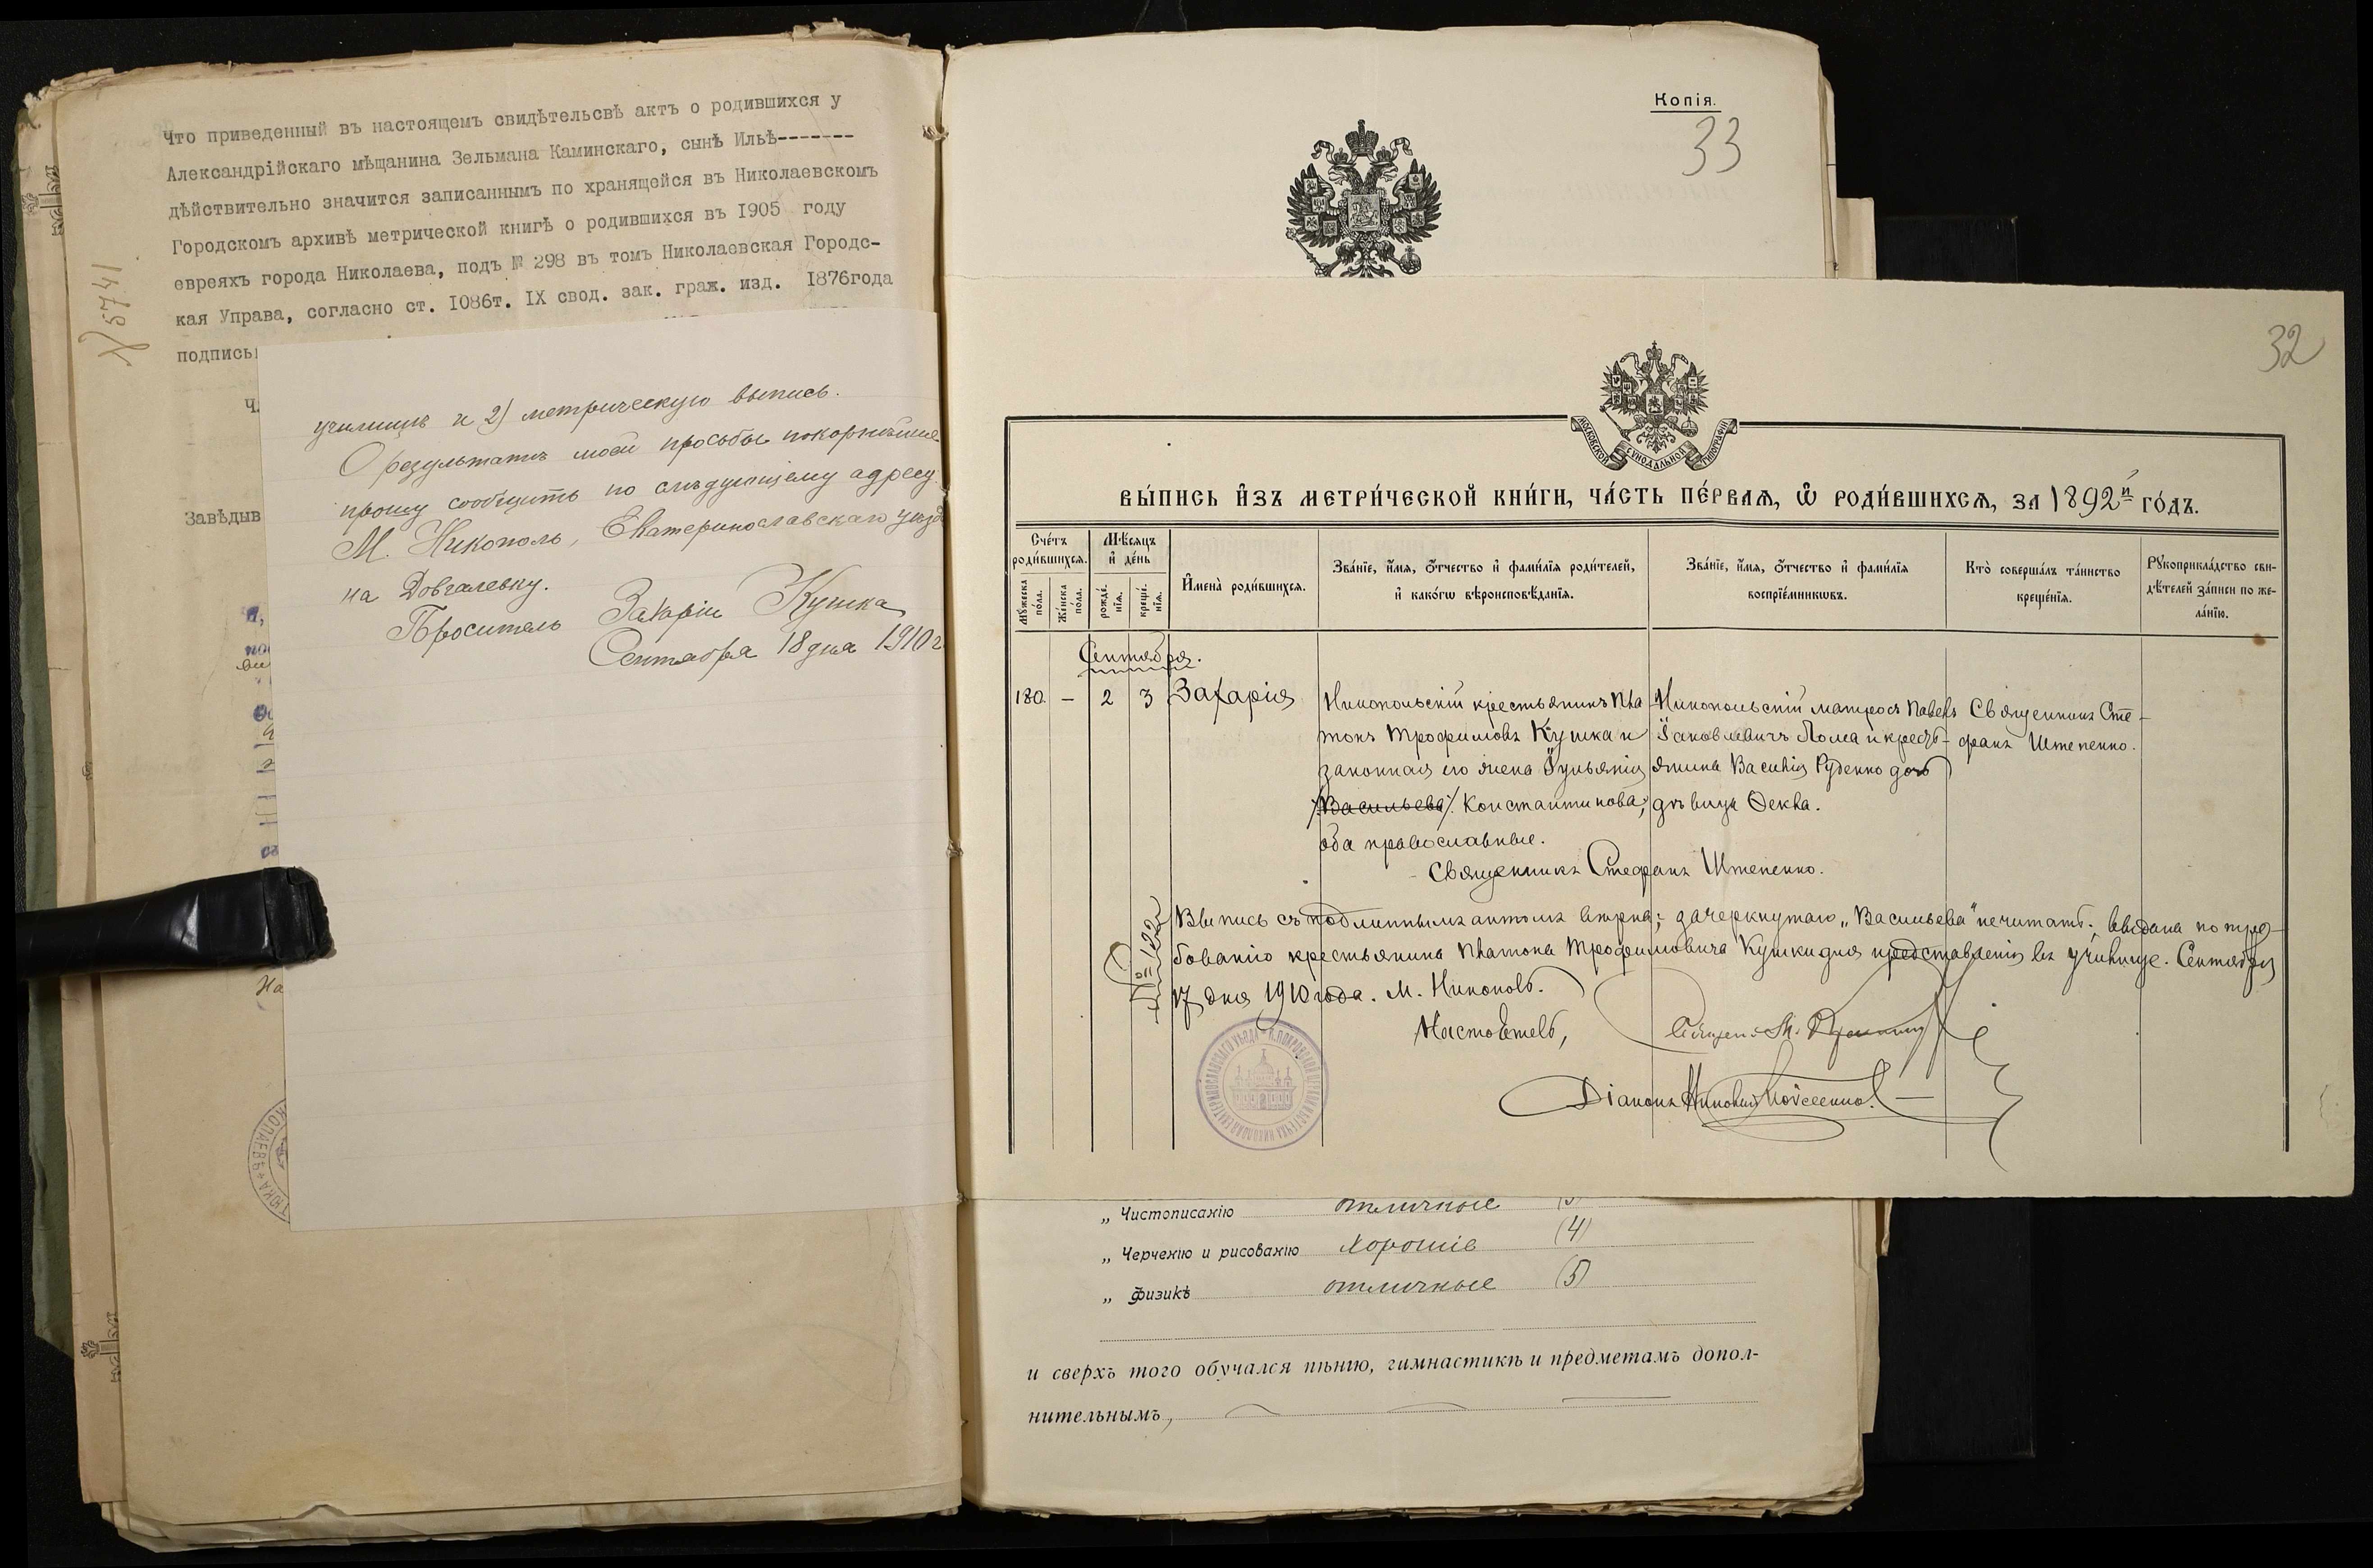 Что приведенный въ настоящемъ свидѣтельсвѣ актъ о родившихся у
Александрійскаго мѣщанина Зельмана Каминскаго, сынѣ Ильѣ-------
дѣйствительно значится записаннымъ по хранящейся въ Николаевскомъ
Городскомъ архивѣ метрической книгѣ о родившихся въ 1905 году
евреяхъ города Николаева, подъ № 298 въ томъ Николаевская Городс-
кая Управа, согласно ст. 1086т. IX свод. зак. граж. изд. 1876года
подпись
Завѣдыв
№ 5741
училищѣ и 2) метрическую выпись.
О результатѣ моей просьбы покорнѣйше
прошу сообщить по слѣдующему адресу:
М. Никополь, Екатеринославскаго уѣзд
на Довгалевку.
Проситель Захарій Кушка
Сентября 18 дня 1910 г
Копія.
33
32
МОСКОВСКОЙ СѴНОДАЛЬНОЙ ТИПОГРАФІИ
ВЫ́ПИСЬ И҆ЗЪ МЕТРИ́ЧЕСКОЙ КНИ́ГИ, ЧА́СТЬ ПЕ́РВАѦ, Ѽ РОДИ́ВШИХСѦ, ЗА 1892й ГО́ДЪ.
Сче́тъ роди́вшихсѧ.
Мѣ́сѧцъ и҆ де́нь
Мꙋ́жеска по́ла.
Же́нска по́ла.
рожде́нїѧ.
креще́нїѧ.
И҆мена̀ роди́вшихсѧ.
Зва́нїе, и҆́мѧ, ѻ҆́тчество и҆ фами́лїѧ роди́телей,
и҆ како́гѡ вѣроисповѣ́данїѧ.
Зва́нїе, и҆́мѧ, ѻ҆́тчество и҆ фами́лїѧ
воспрїе́мникѡвъ.
Кто̀ соверша́лъ та́инство
креще́нїѧ.
Рꙋкоприкла́дство сви-
дѣ́телей за́писи по же-
ла́нїю.
Сентября.
180. – 2 3 Захарія
Никопольскій крестьянинъ Пла-
тонъ Трофимовъ Кушка и
законная его жена Іульянія
/Васильева/. Константинова,
оба православные.
Никопольскій матросъ Павелъ
Іаковлевичъ Лома и кресть-
янина Василія Руденко дочь
дѣвица Ѳекла.
Священникъ Сте-
фанъ Штепенко.
Священникъ Стефанъ Штепенко.
№ 122
Выпись съ подлиннымъ актомъ вѣрна; зачеркнутаго „Васильева" не читать. Выдана по тре-
бованію крестьянина Платона Трофимовича Кушки для представленія въ училище. Сентября
17 дня 1910 года. М. Никополь.
Настоятель, Священ. М.
Діаконъ
„ Чистописанію отличные (5)
„ Черченію и рисованію хорошіе (4)
„ Физикѣ отличные (5)
и сверхъ того обучался пѣнію, гимнастикѣ и предметамъ допол-
нительнымъ,